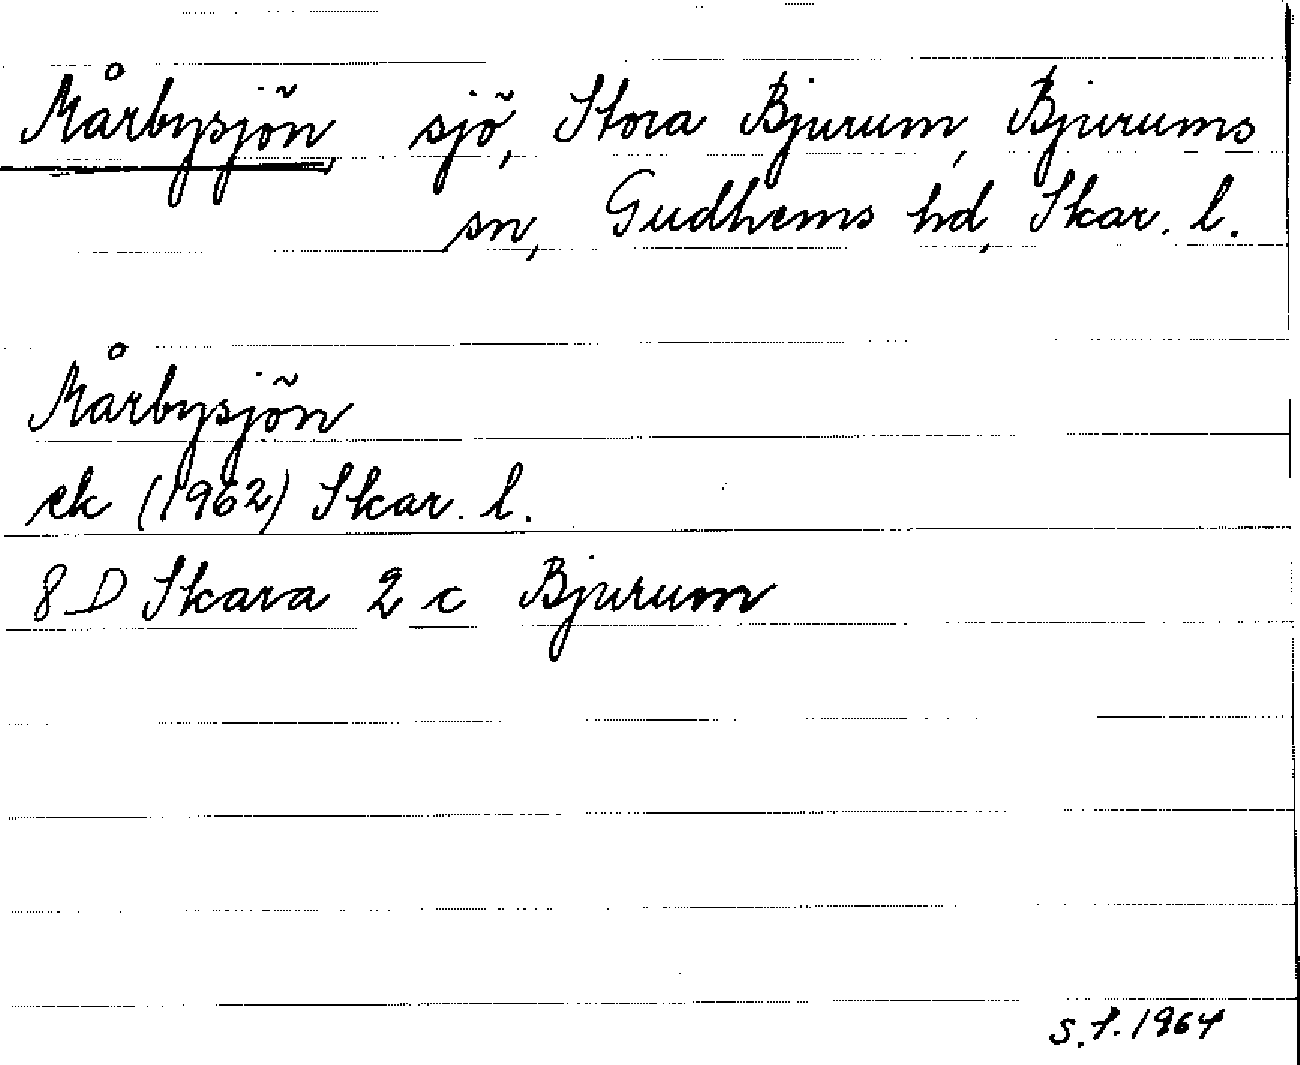 Mårbysjön sjö, Stora Bjurum, Bjurums
sn, Gudhems hd, Skar. l.
Mårbysjön
ek (1962) Skar. l.
8 D Skara 2 c Bjurum
S.f. 1964